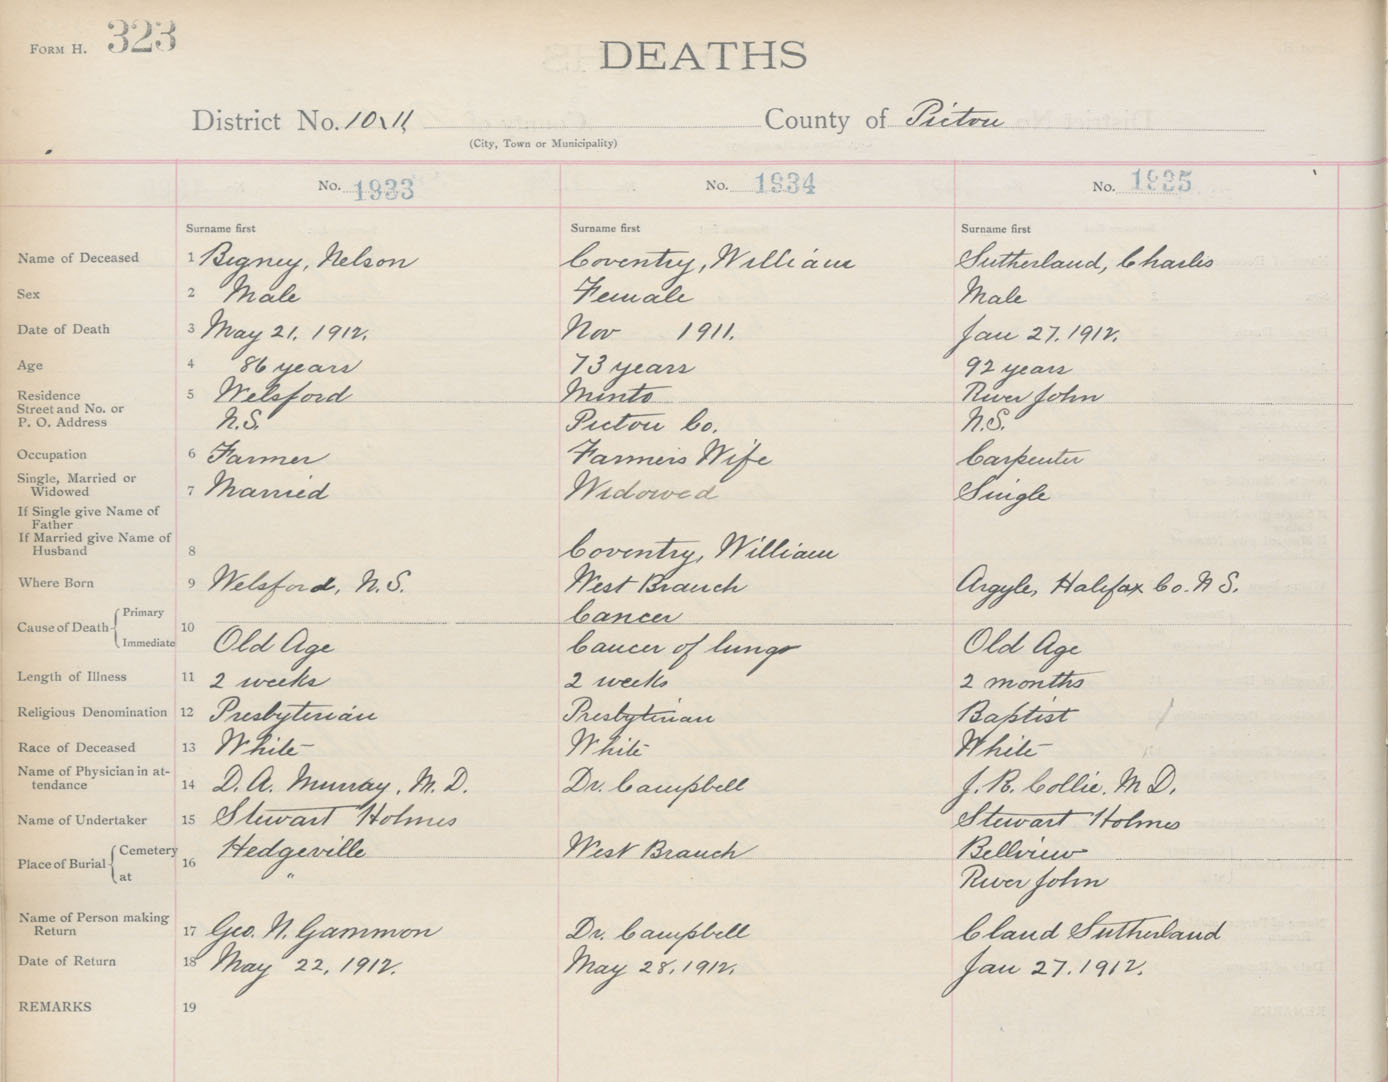 FORM H. 323
DEATHS
District No. 10, 11, County of Pictou
(City, Town or Municipality)
No. 1933 No. 1934 No. 1935
Surname first Surname first Surname first
Name of Deceased 1 Bigney, Nelson Coventry, William Sutherland, Charles
Sex 2 Male Female Male
Date of Death 3 May 21. 1912. Nov 1911. Jan 27. 1912.
Age 4 86 years 73 years 92 years
Residence 5 Welsford Minto River John
Street and No. or
P. O. Address N.S. Pictou Co. N.S.
Occupation 6 Farmer Farmers Wife Carpenter
Single, Married or
Widowed 7 Married Widowed Single
If Single give Name of
Father
If Married give Name of
Husband 8 Coventry, William
Where Born 9 Welsford, N.S. West Branch Argyle, Halifax Co. N S.
Cause of Death Primary 10 Cancer
Immediate Old Age Cancer of lungs Old Age
Length of Illness 11 2 weeks 2 weeks 2 months
Religious Denomination 12 Presbyterian Presbyterian Baptist
Race of Deceased 13 White White White
Name of Physician in at-
tendance 14 D. A. Murray, M. D. Dr. Campbell J. R. Collie. M D.
Name of Undertaker 15 Stewart Holmes Stewart Holmes
Place of Burial Cemetery 16 Hedgeville West Branch Bellview
at " River John
Name of Person making
Return 17 Geo. N. Gammon Dr. Campbell Claud Sutherland
Date of Return 18 May 22, 1912. May 28, 1912. Jan 27. 1912.
REMARKS 19